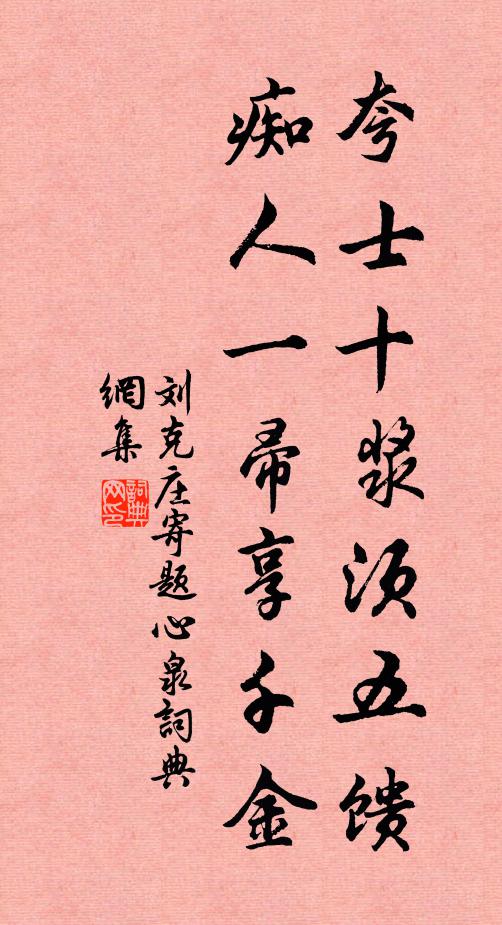 夸士十浆须五馈
痴人一帚享千金
刘克庄寄题心泉詞典
網集
詞典
网印